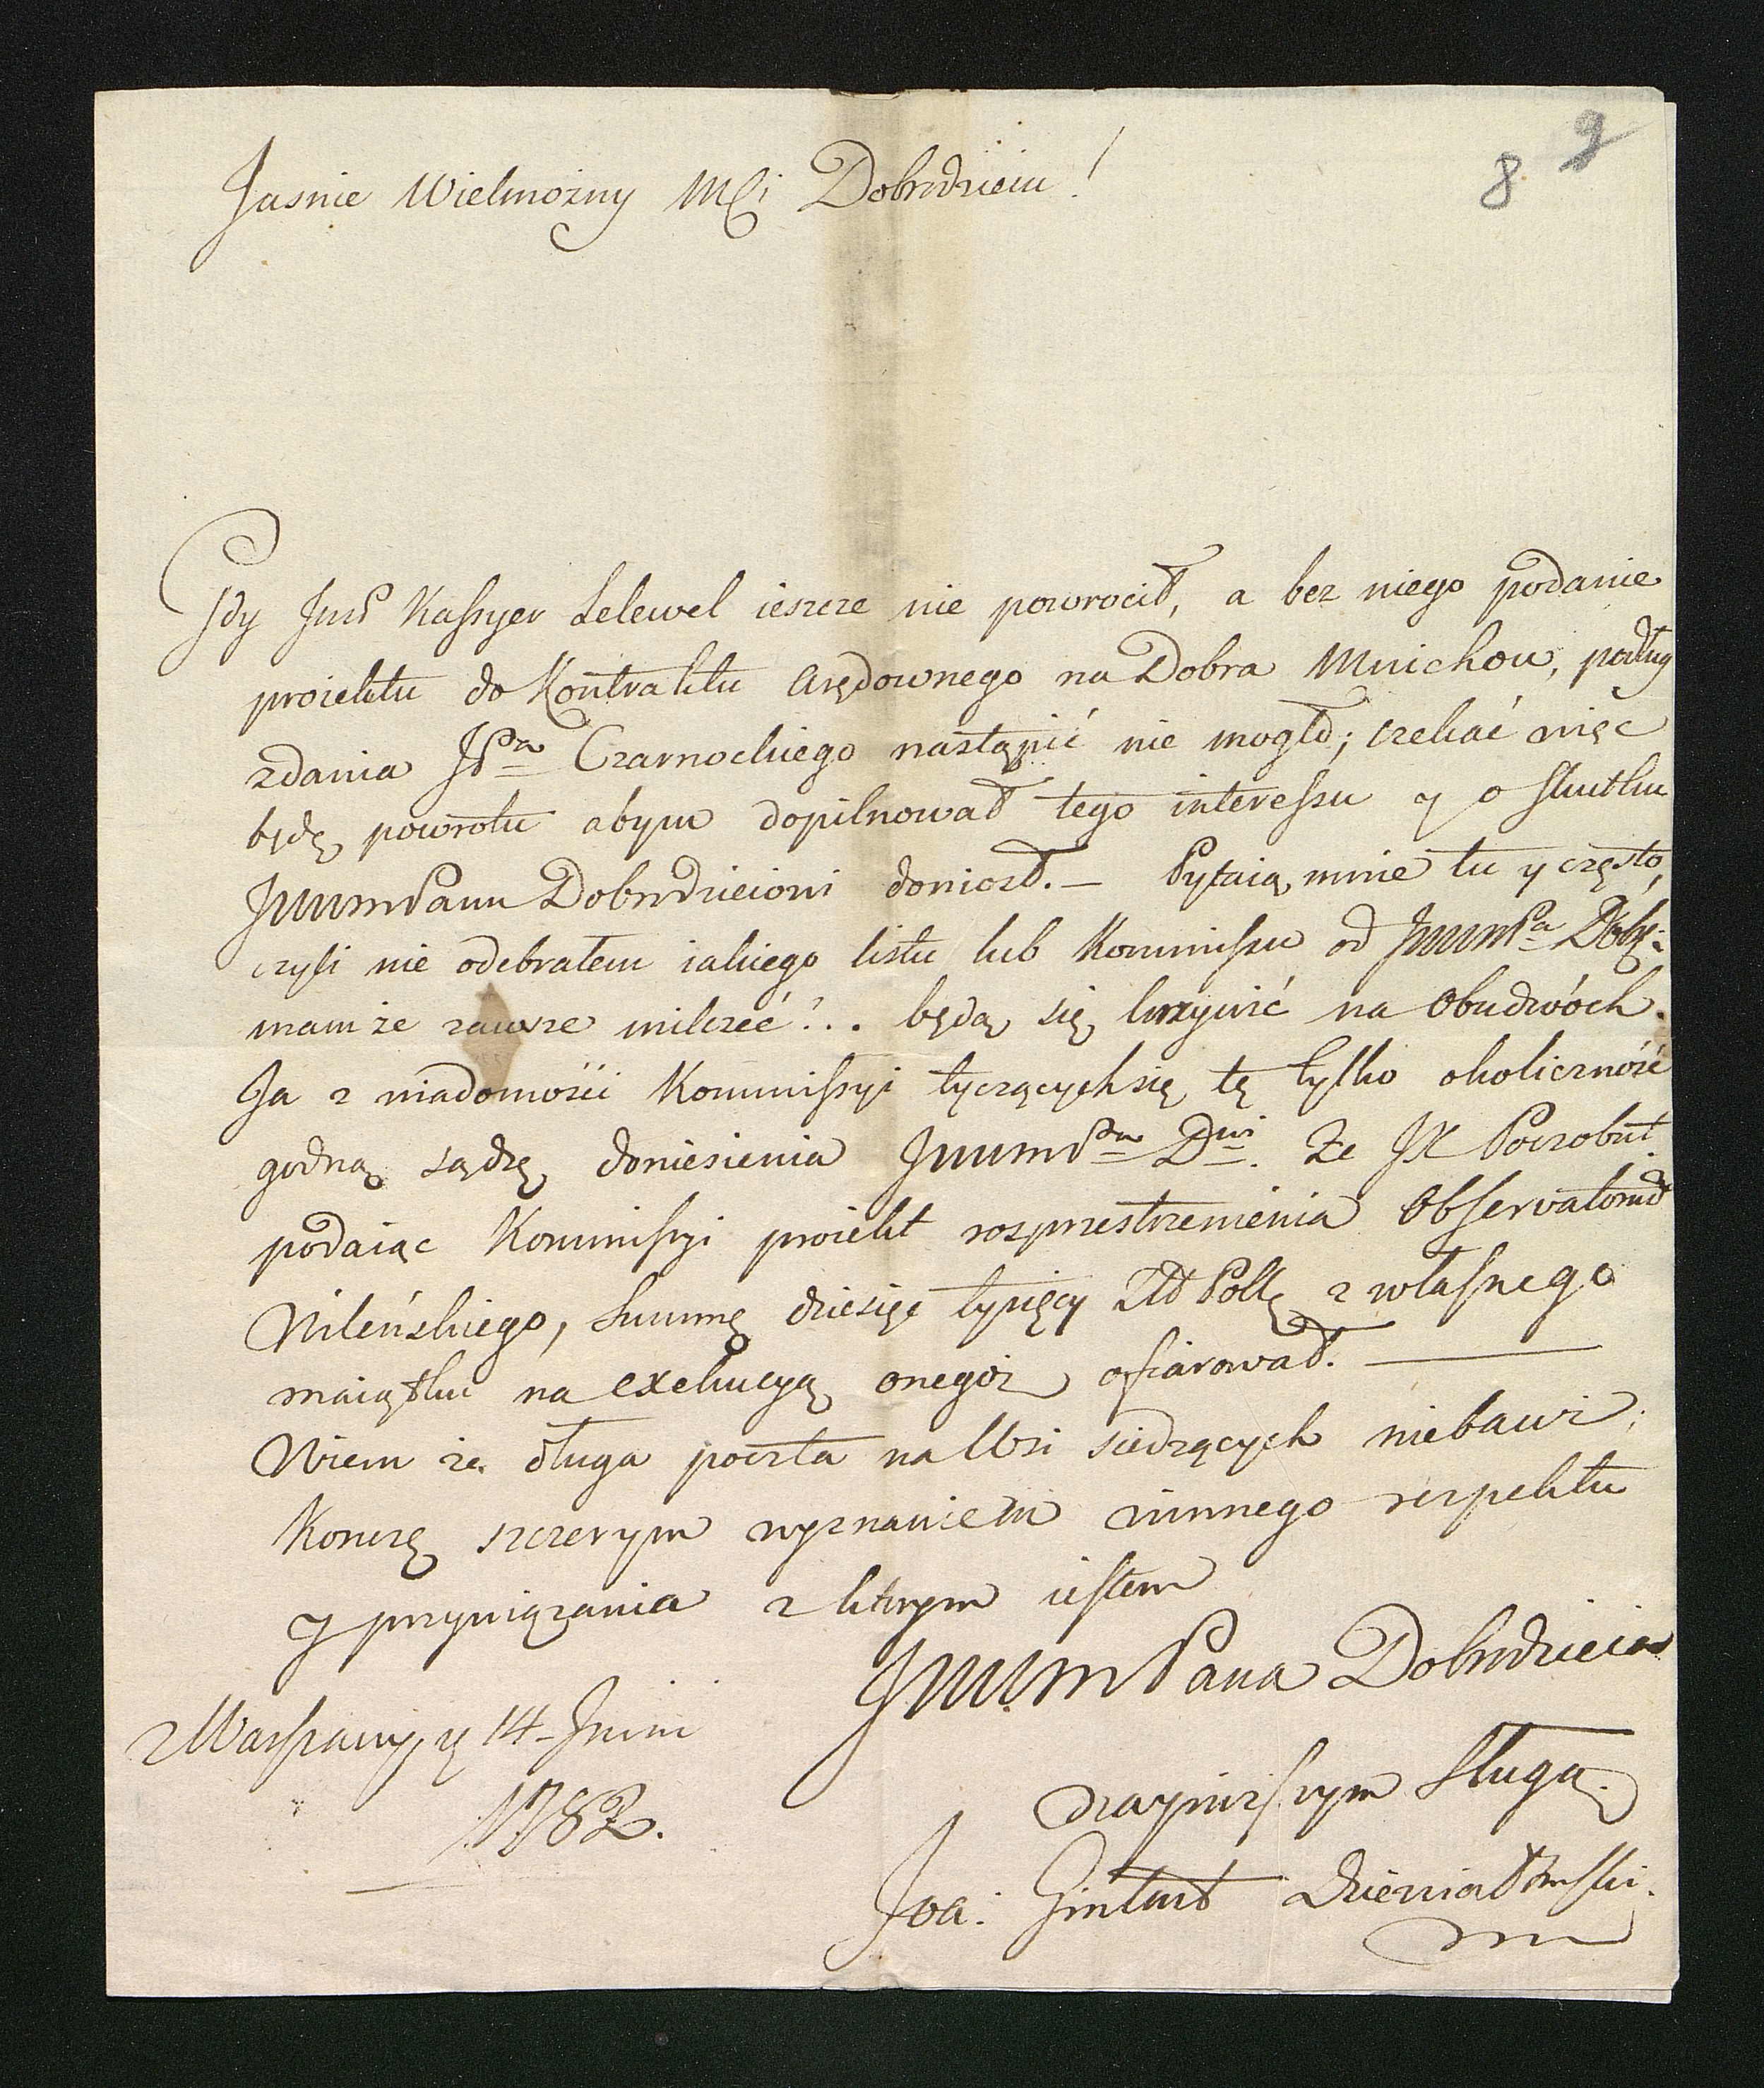 8 9
Jasnie Wielmożny Mći Dobrodzieiu!
Gdy Jmć Kassyer Lelewel ieszcze nie powrocił, a bez niego podanie
proiektu do Kontraktu Arędownego na Dobra Mnichow, podług
zdania JPa Czarnockiego nastąpić nie mogło; czekać więc
będę powrotu abym dopilnował tego interessu y o skutku
JWWMPanu Dobrodzieiowi doniosł. — Pytaią mnie tu y często,
czyli nie odebrałem iakiego listu lub Kommissu od JWWMPa Dobr:
mam że zawsze milczeć?.. będą się krzywić na Obudwóch.
Ja z wiadomości Kommissyi tyczącychsię tę tylko okoliczność
godną sądzę doniesienia JWWMPa Dwi. Że JX Poczobut
podaiąc Kommissyi proiekt rozprzestrzenienia Observatorium
Wileńskiego, Summę dziesięć tysięcy Złł Poll z własnego
maiątku na exekucyą onegoż ofiarował. —
Wiem że długa poczta na Wsi siedzących niebawi;
Kończę szczerym wyznaniem winnego respektu
y przywiązania z ktorym iestem
JWWMPana Dobrodzieia
z Warszawy, d 14 Junii
1782.
naynizszym Sługą.
Joa: Gintowt Dziewiałtowski.